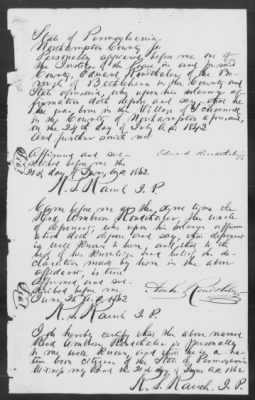 State of Pennsylvania
Northampton County ss
Personally appeared before me one of
the Justices of the Peace in and for said
County, Edward Rondthaler of the Bo-
rough of Bethlehem in the County and
State aforesaid, who upon his solemn af-
firmation doth depose and say, that he
was born in the Village of Schoeneck
in the County of Northampton aforesaid,
on the 24th day of July A.D. 1842
and further saith not
Affirmed and sub-
scribed before me the
day of June A.D. 1862.
Edward Rondthaler
R. S. Rauch J. P.
Seal
Came before me at the same time the
Rondthaler, the uncle
of deponent, who upon his solemn affirm-
ation doth depose and say, that deponent
is well known to him, and that to the
best of his knowledge and belief the de-
claration made by him in the above
affidavit, is true
Affirmed and sub-
scribed before me
June A.D. 1862
Rondthaler
R. S. Rauch J. P.
Seal
I do hereby certify that the above named
Rondthaler is personally
to me well known, and that he is a na-
tive born citizen of the State of Pennsylvania
Witness my hand the day of June A.D. 1862
R. S. Rauch J. P.